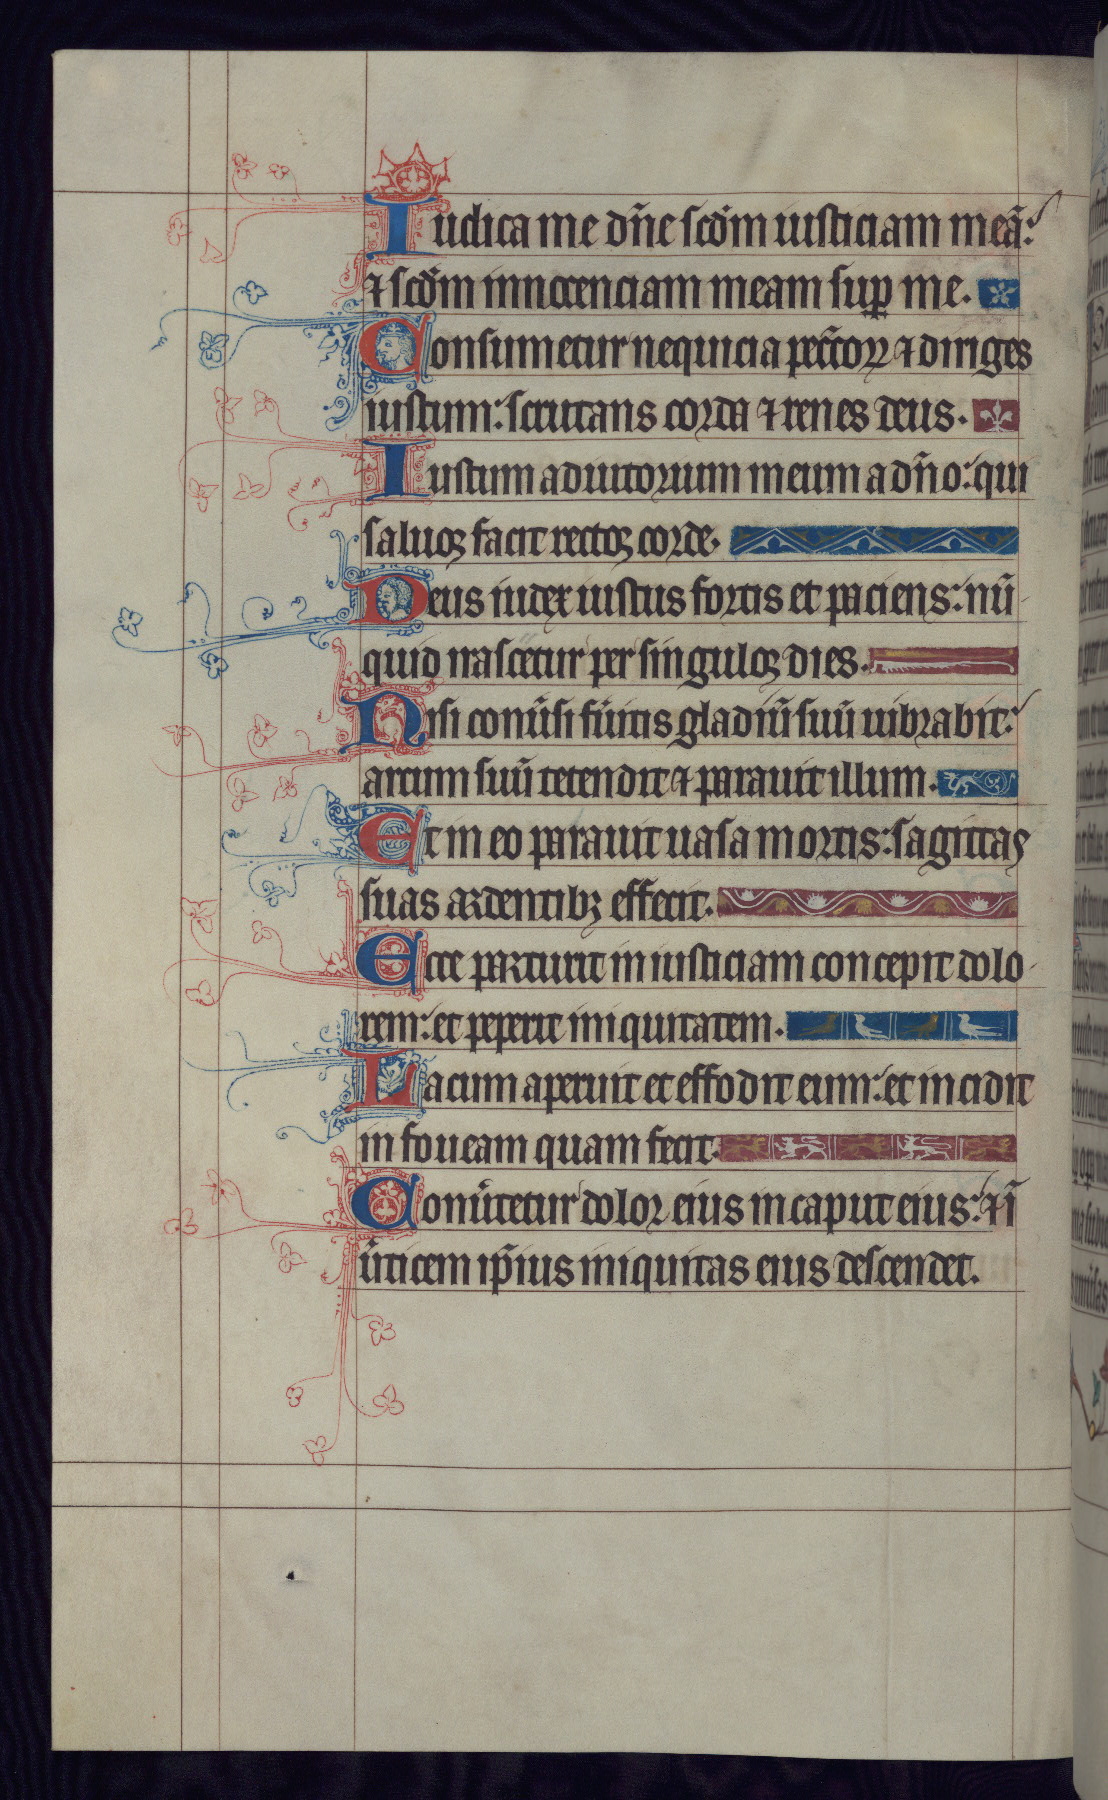 Iudica me dñe scdm iusticiam meã:
⁊ scdm innocenciam meam suꝑ me.
Consumetur nequicia pecc̃oꝝ ⁊ diriges
iustum: scrutans corda ⁊ renes deus.
Iustum adiutorium meum a dño: qui
saluos facit rectos corde.
Deus iudex iustus fortis et paciens: nũ
quid irascetur per singulos dies.
Nisi conũsi fũitis gladiũ suũ uibrabit:
arcum suũ tetendit ⁊ parauit illum.
Et in eo parauit uasa mortis: sagittas
suas ardentibꝫ effecit.
Ecce parturit iniusticiam concepit dolo
rem: et peperit iniquitatem.
Lacum aperuit et effodit eum: et incidit
in foueam quam fecit.
Conũtetur dolor eius in caput eius: ⁊ ĩ
ũticem ip̃ius iniquitas eius descendet.